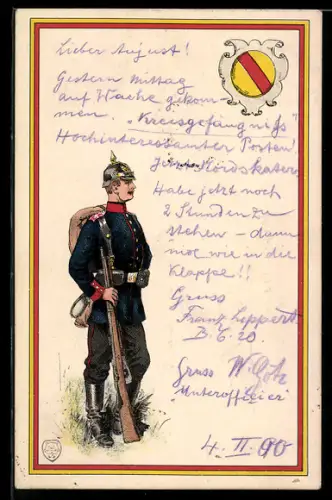 Lieber August!
Gestern Mittag
auf Wache gekom-
men. „Kreisgefängniß"
Hochinteressanter Posten!
Mordskater
Habe jetzt noch
2 Stunden zu
stehen – dann
wie in die
Klappe!!
Gruss
Franz Lippert
B. 6. 20.
Gruss W. Götz
Unterofficier
4. II. 90